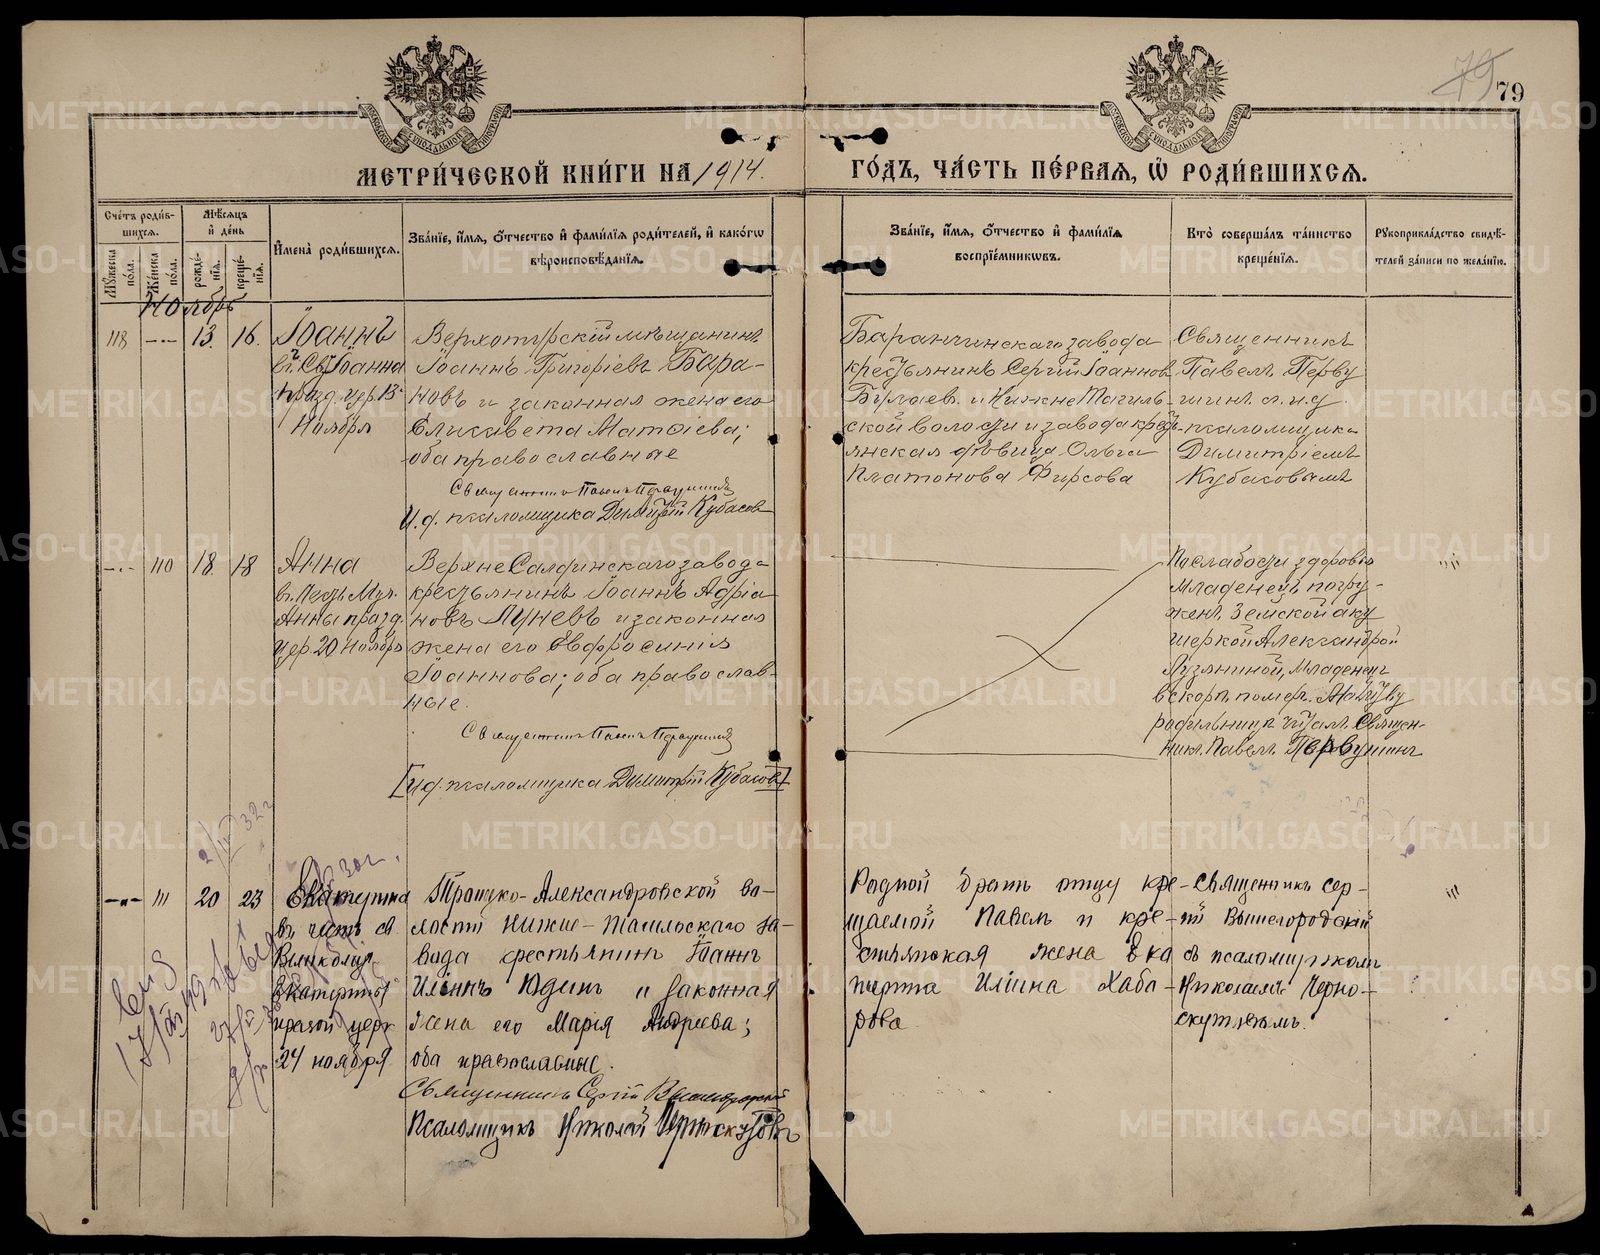 79
79
МЕТРИ́ЧЕСКОЙ КНИ́ГИ НА 1914.
ГО́ДЪ, ЧА́СТЬ ПЕ́РВАѦ, Ѡ҆ РОДИ́ВШИХСѦ.
Сче́тъ роди́в-
шихсѧ.
Мѣ́сѧцъ
и҆ де́нь
Мꙋ́жеска
пола.
Же́нска
пола.
рожде́-
нїѧ.
креще́-
нїѧ.
И҆мена̀ роди́вшихсѧ.
Зва́нїе, и҆́мѧ, ѻ҆́тчество и҆ фами́лїѧ роди́телей, и҆ како́гѡ
вѣроисповѣ́данїѧ.
Зва́нїе, и҆́мѧ, ѻ҆́тчество и҆ фами́лїѧ
воспрїе́мникѡвъ.
Кто̀ соверша́лъ та́инство
креще́нїѧ.
Рꙋкоприкла́дство свидѣ́-
телей за́писи по жела́нїю.
Ноябрь
118
13.
16.
Іоаннъ
въ С. Іоанна
празд. цер. 13
Ноября
Верхотурскій мѣщанинъ
Іоаннъ Григоріевъ Бара-
новъ и законная жена его
Елисавета Матѳіева;
оба православные
Священникъ Павелъ Первушинъ
И.д. псаломщика Димитрій Кубасовъ
Баранчинскаго завода
крестьянинъ Сергій Іоаннов
Булаев. и Нижне Тагиль-
ской волости и завода кресть-
янская дѣвица Ольга
Платонова Фирсова
Священникъ
Павелъ Перву
шинъ с и.д.
псаломщика
Димитріемъ
Кубасовымъ
110
18.
18
Анна
въ честь Муч.
Анны празд.
цер. 20 Ноября
Верхне Салдинскаго завода
крестьянинъ Іоаннъ Адріа
новъ Луневъ и законная
жена его Евфросинія
Іоаннова; оба православ-
ные.
Священникъ Павелъ Первушинъ
[И.д. псаломщика Димитрій Кубасовъ]
По слабости здоровья
младенецъ погру-
женъ Земской аку
шеркой Александрой
Лузяниной, младенец
вскорѣ помер. Молитву
родильницѣ читалъ Священ-
никъ Павелъ Первушинъ
111
20
23
Екатерина
въ честь св
Великомуч
Екатерины
празд церк
24 ноября
Троицко-Александровской во-
лости Нижне-Тагильскаго за-
вода крестьянинъ Іоаннъ
Ильинъ Юдинъ и законная
жена его Марія Андреева;
оба православные.
Священникъ Сергій Вышегородскій
Псаломщикъ Николай Черноскутовъ
Родной братъ отцу кре-
щаемой Павелъ и кре-
стьянская жена Ека
терина Иліина Хаба-
рова
Священникъ Сер-
гій Вышегородскій
съ псаломщикомъ
Николаемъ Черно-
скутовымъ.
METRIKI.GASO-URAL.RU